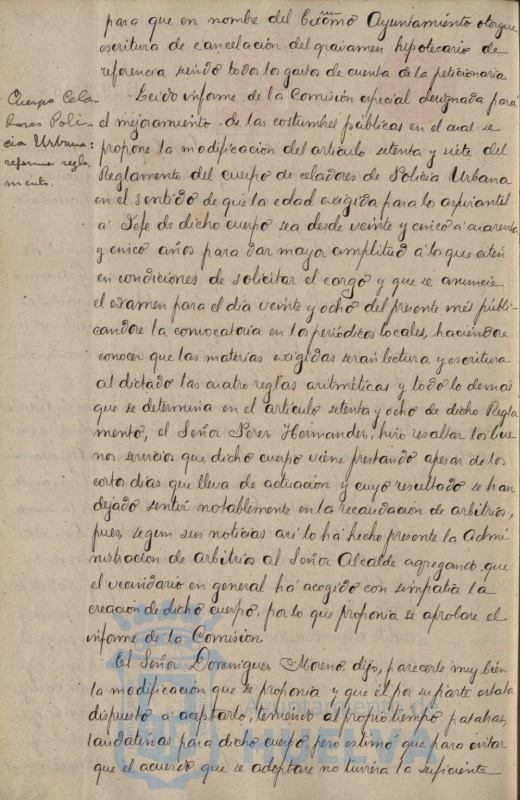 para que en nombre del Excmo Ayuntamiento otorgue
escritura de cancelación del gravamen hipotecario de
referencia siendo todos los gastos de cuenta de la peticionaria
Cuerpo Cela-
dores Poli-
cia Urbana:
reforma regla
mento.
Leido informe de la Comisión especial designada para
el mejoramiento de las costumbres públicas en el cual se
propone la modificación del articulo setenta y siete del
Reglamento del cuerpo de celadores de Policia Urbana
en el sentido de que la edad exigida para los aspirantes
a Jefe de dicho cuerpo sea desde veinte y cinco a cuarenta
y cinco años para dar mayor amplitud a los que esten
en condiciones de solicitar el cargo y que se anuncie
el examen para el dia veinte y ocho del presente mes públi-
candose la convocatoria en los periódicos locales, haciendose
conocer que las materias exigidas seran lectura y escritura
al dictado las cuatro reglas aritméticas y todo lo demas
que se determina en el articulo setenta y ocho de dicho Regla
mento, el Señor Perez Hernandez, hizo resaltar los bue
nos servicios que dicho cuerpo viene prestando apesar de los
cortos dias que lleva de actuacion y cuyo resultado se han
dejado sentir notablemente en la recaudación de arbitrios,
pues, segun sus noticias asi lo há hecho presente la Admi
nistracion de Arbitrios al Señor Alcalde agregando que
el vecindario en general há acogido con simpatia la
creacion de dicho cuerpo, por lo que proponia se aprobase el
informe de la Comision
El Señor Dominguez Moreno dijo, parecerle muy bien
la modificación que se proponia y que él por su parte estaba
dispuesto a aceptarlo, teniendo al propio tiempo palabras
laudatorias para dicho cuerpo, pero estimo que para evitar
que el acuerdo que se adoptare no tuviera la suficiente
Ayuntamiento de
HUELVA